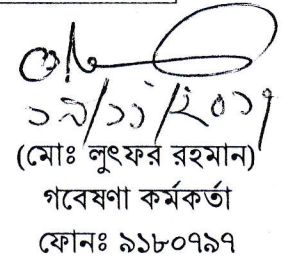 ১৯/১১/২০১৭
(মোঃ লুৎফর রহমান)
গবেষণা কর্মকর্তা
ফোনঃ ৯১৮০৭৯৭